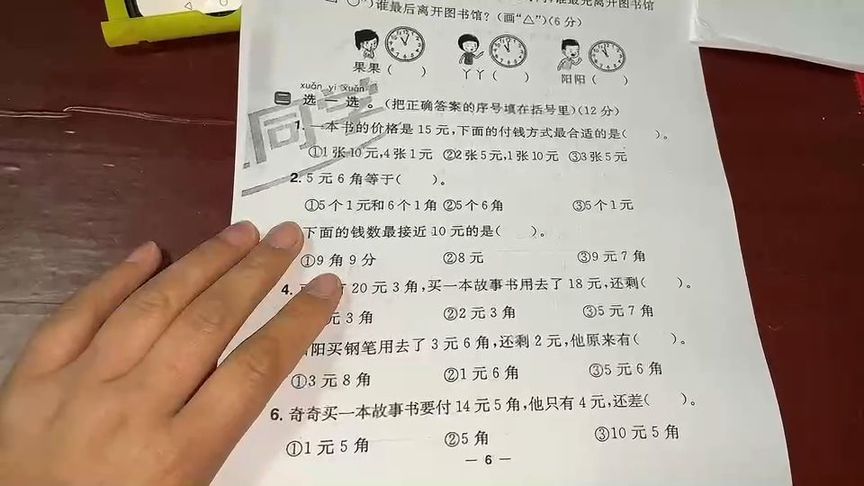 谁最先离开图书馆
谁最后离开图书馆?(画"△")(6分)
果果( ) 丫丫( ) 阳阳( )
xuǎn yi xuǎn
二 选一选。(把正确答案的序号填在括号里)(12分)
同学
1. 一本书的价格是15元,下面的付钱方式最合适的是( )。
①1张10元,4张1元 ②2张5元,1张10元 ③3张5元
2. 5元6角等于( )。
①5个1元和6个1角 ②5个6角 ③5个1元
下面的钱数最接近10元的是( )。
①9角9分 ②8元 ③9元7角
4. 有20元3角,买一本故事书用去了18元,还剩( )。
元3角 ②2元3角 ③5元7角
阳买钢笔用去了3元6角,还剩2元,他原来有( )。
①3元8角 ②1元6角 ③5元6角
6. 奇奇买一本故事书要付14元5角,他只有4元,还差( )。
①1元5角 ②5角 ③10元5角
— 6 —